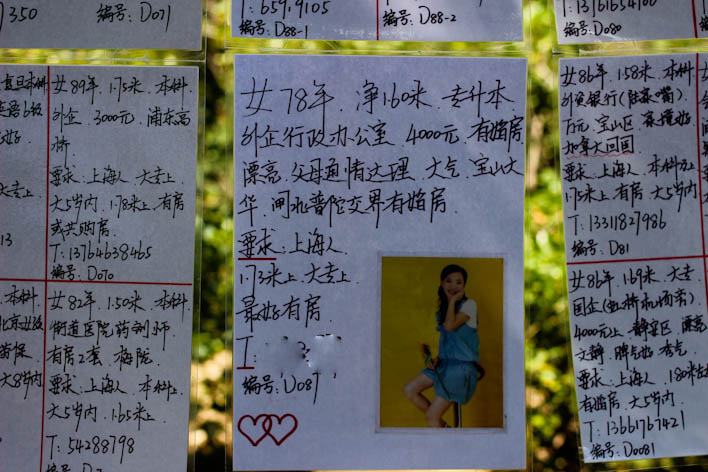 350 编号: D071
T: 659.9105
编号: D88-1
编号: D88-2
T:13761654100
编号: D080
13
女 89年 1.75米 本科
外企 3000元 浦东高
桥
要求: 上海人 大专上
大5岁内 1.78米上 有房
或共购房
T: 13764638465
编号: D070
女 82年 1.50米 本科
街道医院药剂师
有房2套 梅陇
要求: 上海人 本科上
大5岁内 1.65米上
T: 54288798
女 78年. 净160米. 专升本
外企行政办公室 4000元. 有婚房.
漂亮. 父母通情达理. 大气. 宝山大
华. 闸北普陀交界有婚房.
要求: 上海人
1.73米上. 大专上
最好有房
T:
编号: D087
女 86年 1.58米 本科
外资银行(陆家嘴)
万元 宝山区
加拿大回国
要求: 上海人 本科
1.75米上 有房 大5岁内
T: 13311827986
编号: D81
女 86年 1.69米 大专
国企(虹桥机场旁)
4000元上 静安区 漂亮
文静 脾气好 秀气
要求: 上海人 180米左
有婚房. 大5岁内
T: 13661767421
编号: D0081